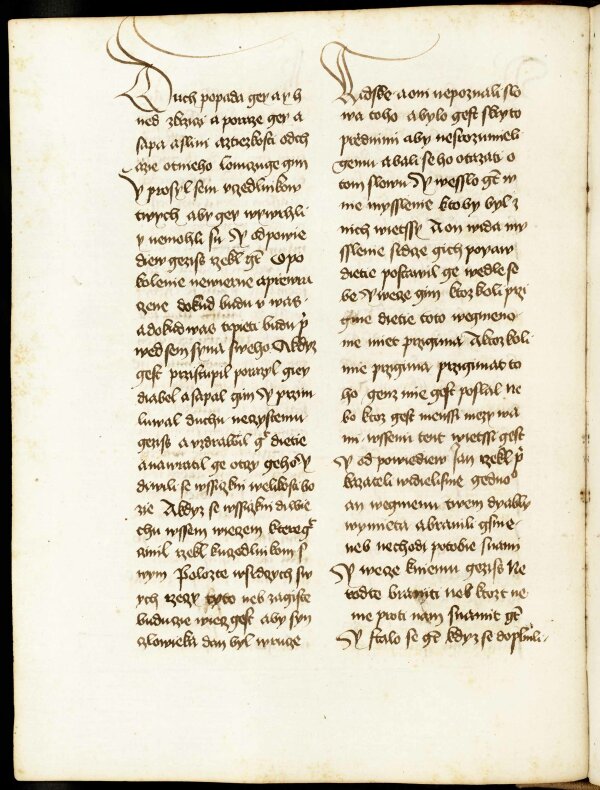 Duch popada gey a yh
ned zkrziczi a poraze gey a
sapa aslini aztiezkosti odch
azie otnieho lomczuge gim
Y prosyl sem vczedlnikow
twych aby gey wywrhli
y nemohli su Y odpowie
diew gezis rzekl gt O po
kolenie newierne a prewra
czene dokud budu v was
a dokud was trpieti budu p
wed sem syna sweho A kdyz
gest przistupil porazyl giey
diabel a sapal gim Y przim
luwal duchu neczystemu
gezis a vzdrawil g dietie
a nawratil ge otczy geho Y
diwili se wssiczkni welikosti bo
zie A kdyz se wssiczkni diwie
chu wssem wieczem ktereg
czinil rzekl kuczedlnikom s
wym Polozte w srdczych sw
ych rzeczy tyto neb zagiste
buducie wiecz gest aby syn
czlowieka dan byl w rucze
lidske a oni nepoznali slo
wa toho a bylo gest skryto
przednimi aby nesrozumieli
gemu a bali se ho otazati o
tom slowu Y wesslo gt w
ne myssleni kto by byl z
nich wietssy A on wida my
ssleni srdcze gich poyaw
dietie postawil ge wedle se
be Y wecze gim ktoz koli przi
gme dietie toto wegmeno
me mne przigima A ktoz koli
mne przigima przigimat to
ho genz mie gest poslal ne
bo ktoz gest menssi mezy wa
mi wssemi tent wietssi gest
Y odpowiediew Jan rzekl p
kazateli widielisme gedno
an wegmenu twem dyably
wymieta a branili gsme
neb nechodi potobie snami
Y wecze kniemu gezis Ne
rodte braniti neb ktozt ne
ni proti nam snamit gt
Y stalo se gt kdyz se doplnili